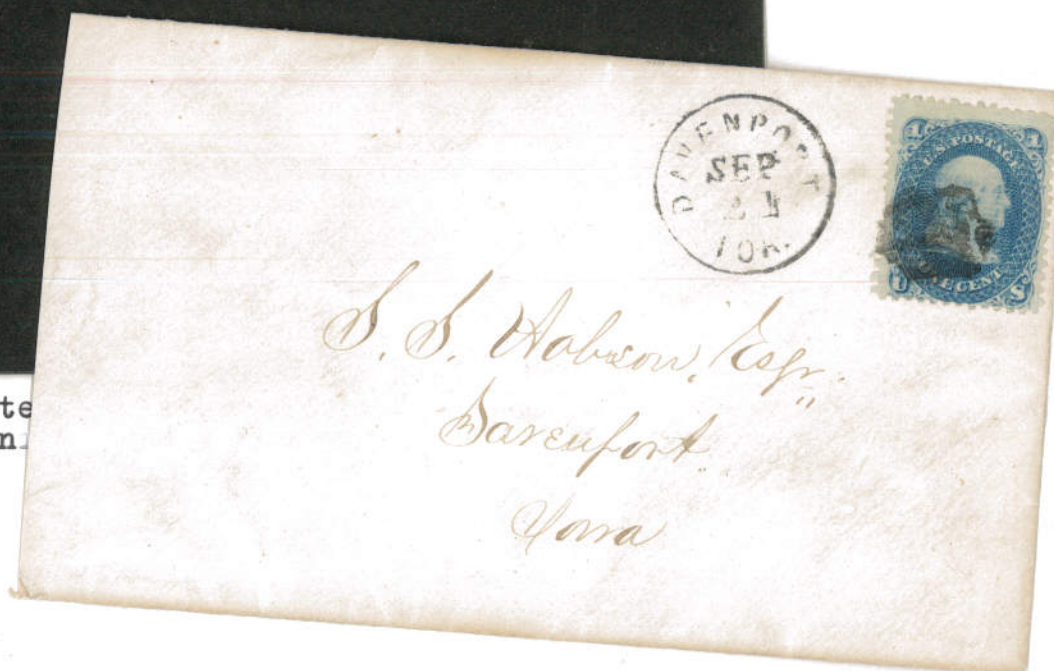 DAVENPORT
SEP
21
IOA.
U.S. POSTAGE
1 1
ONE CENT
U S
S. S. Hobson, Esqr.
Davenport
Iowa
te